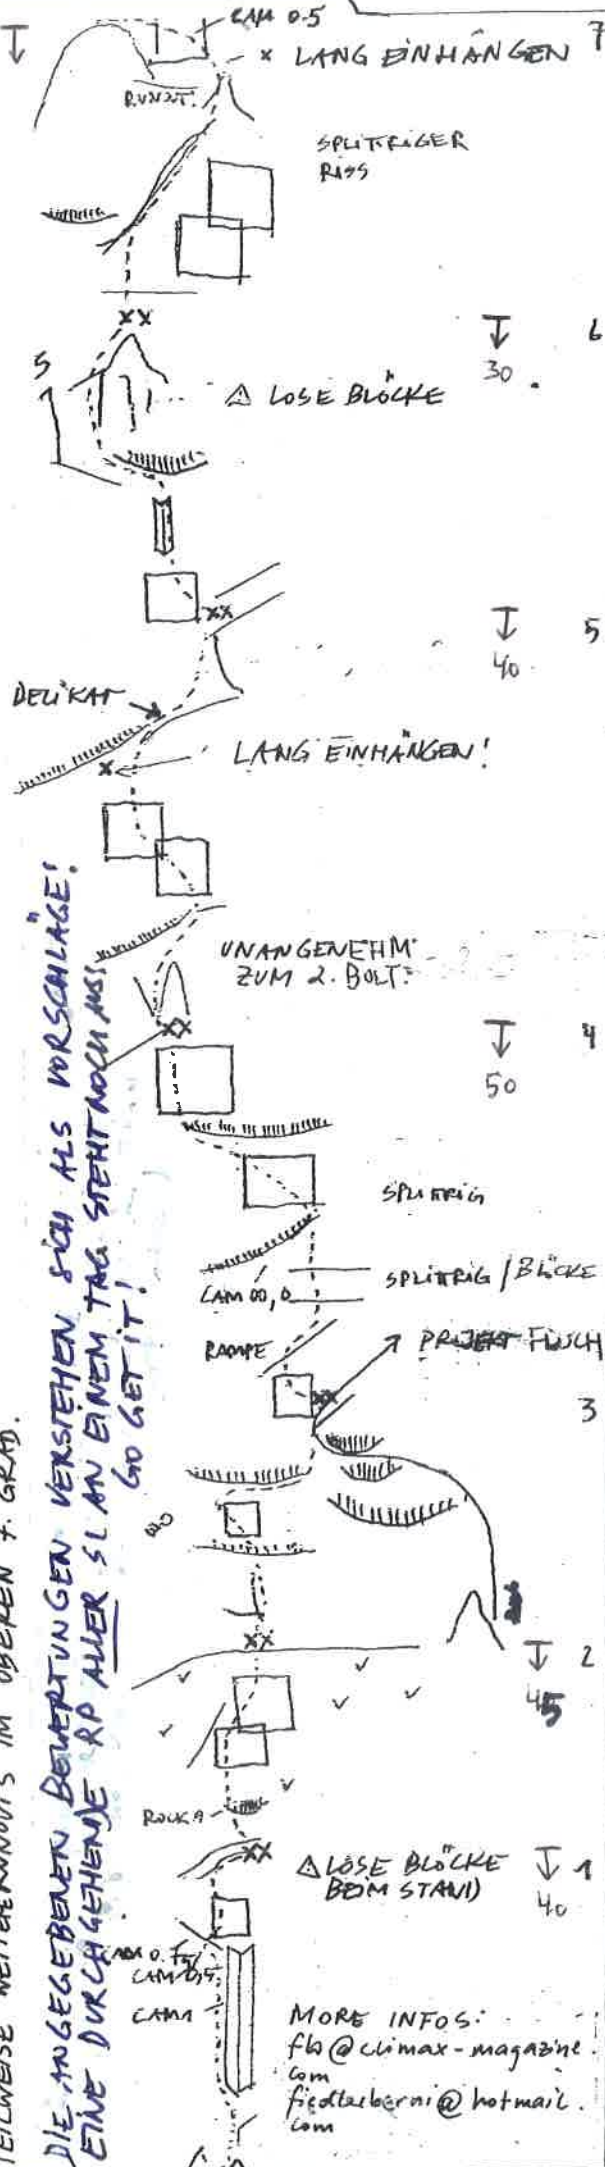 CAM 0.5
7
x LANG EINHÄNGEN
SPLITTRIGER
RISS
XX
6
30
5
⚠ LOSE BLÖCKE
XX
5
40
DELIKAT
LANG EINHÄNGEN!
x
UNANGENEHM
ZUM 2. BOLT.
XX
4
50
SPLITTRIG
CAM 00,0
SPLITTRIG / BLÖCKE
RAMPE
PROJEKT FLUCH
XX
3
XX
2
45
ROCK 9
XX
⚠ LOSE BLÖCKE
BEIM STAND
1
40
CAM 0.75
CAM 0,5
CAM 1
MORE INFOS:
flo@climax-magazine.
com
fiedlerberni@hotmail.
com
TEILWEISE IM OBEREN 7. GRAD.
DIE ANGEGEBENEN BEWERTUNGEN VERSTEHEN SICH ALS VORSCHLÄGE!
EINE DURCHGEHENDE RP ALLER SL AN EINEM TAG STEHT NOCH AUS
GO GET IT!